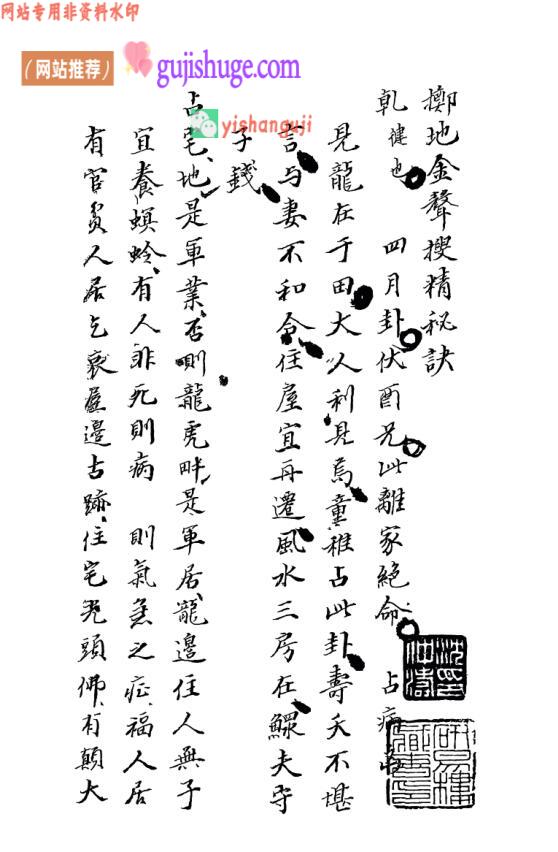 网站专用非资料水印
（网站推荐）
gujishuge.com
yishanguji
擲地金聲搜精秘訣
乹健也 四月卦伏酉兄此離家絕命 占病
見龍在于田大人利見焉童稚占此卦壽夭不堪
言与妻不和合住屋宜再遷風水三房在鰥夫守
子錢
占宅地是軍業否則龍虎畔是軍居龍邊住人無子
宜養螟蛉有人非死則病 則氣急之症福人居
有官貧人居乞衰屋邊古跡住宅光頭佛有顛大